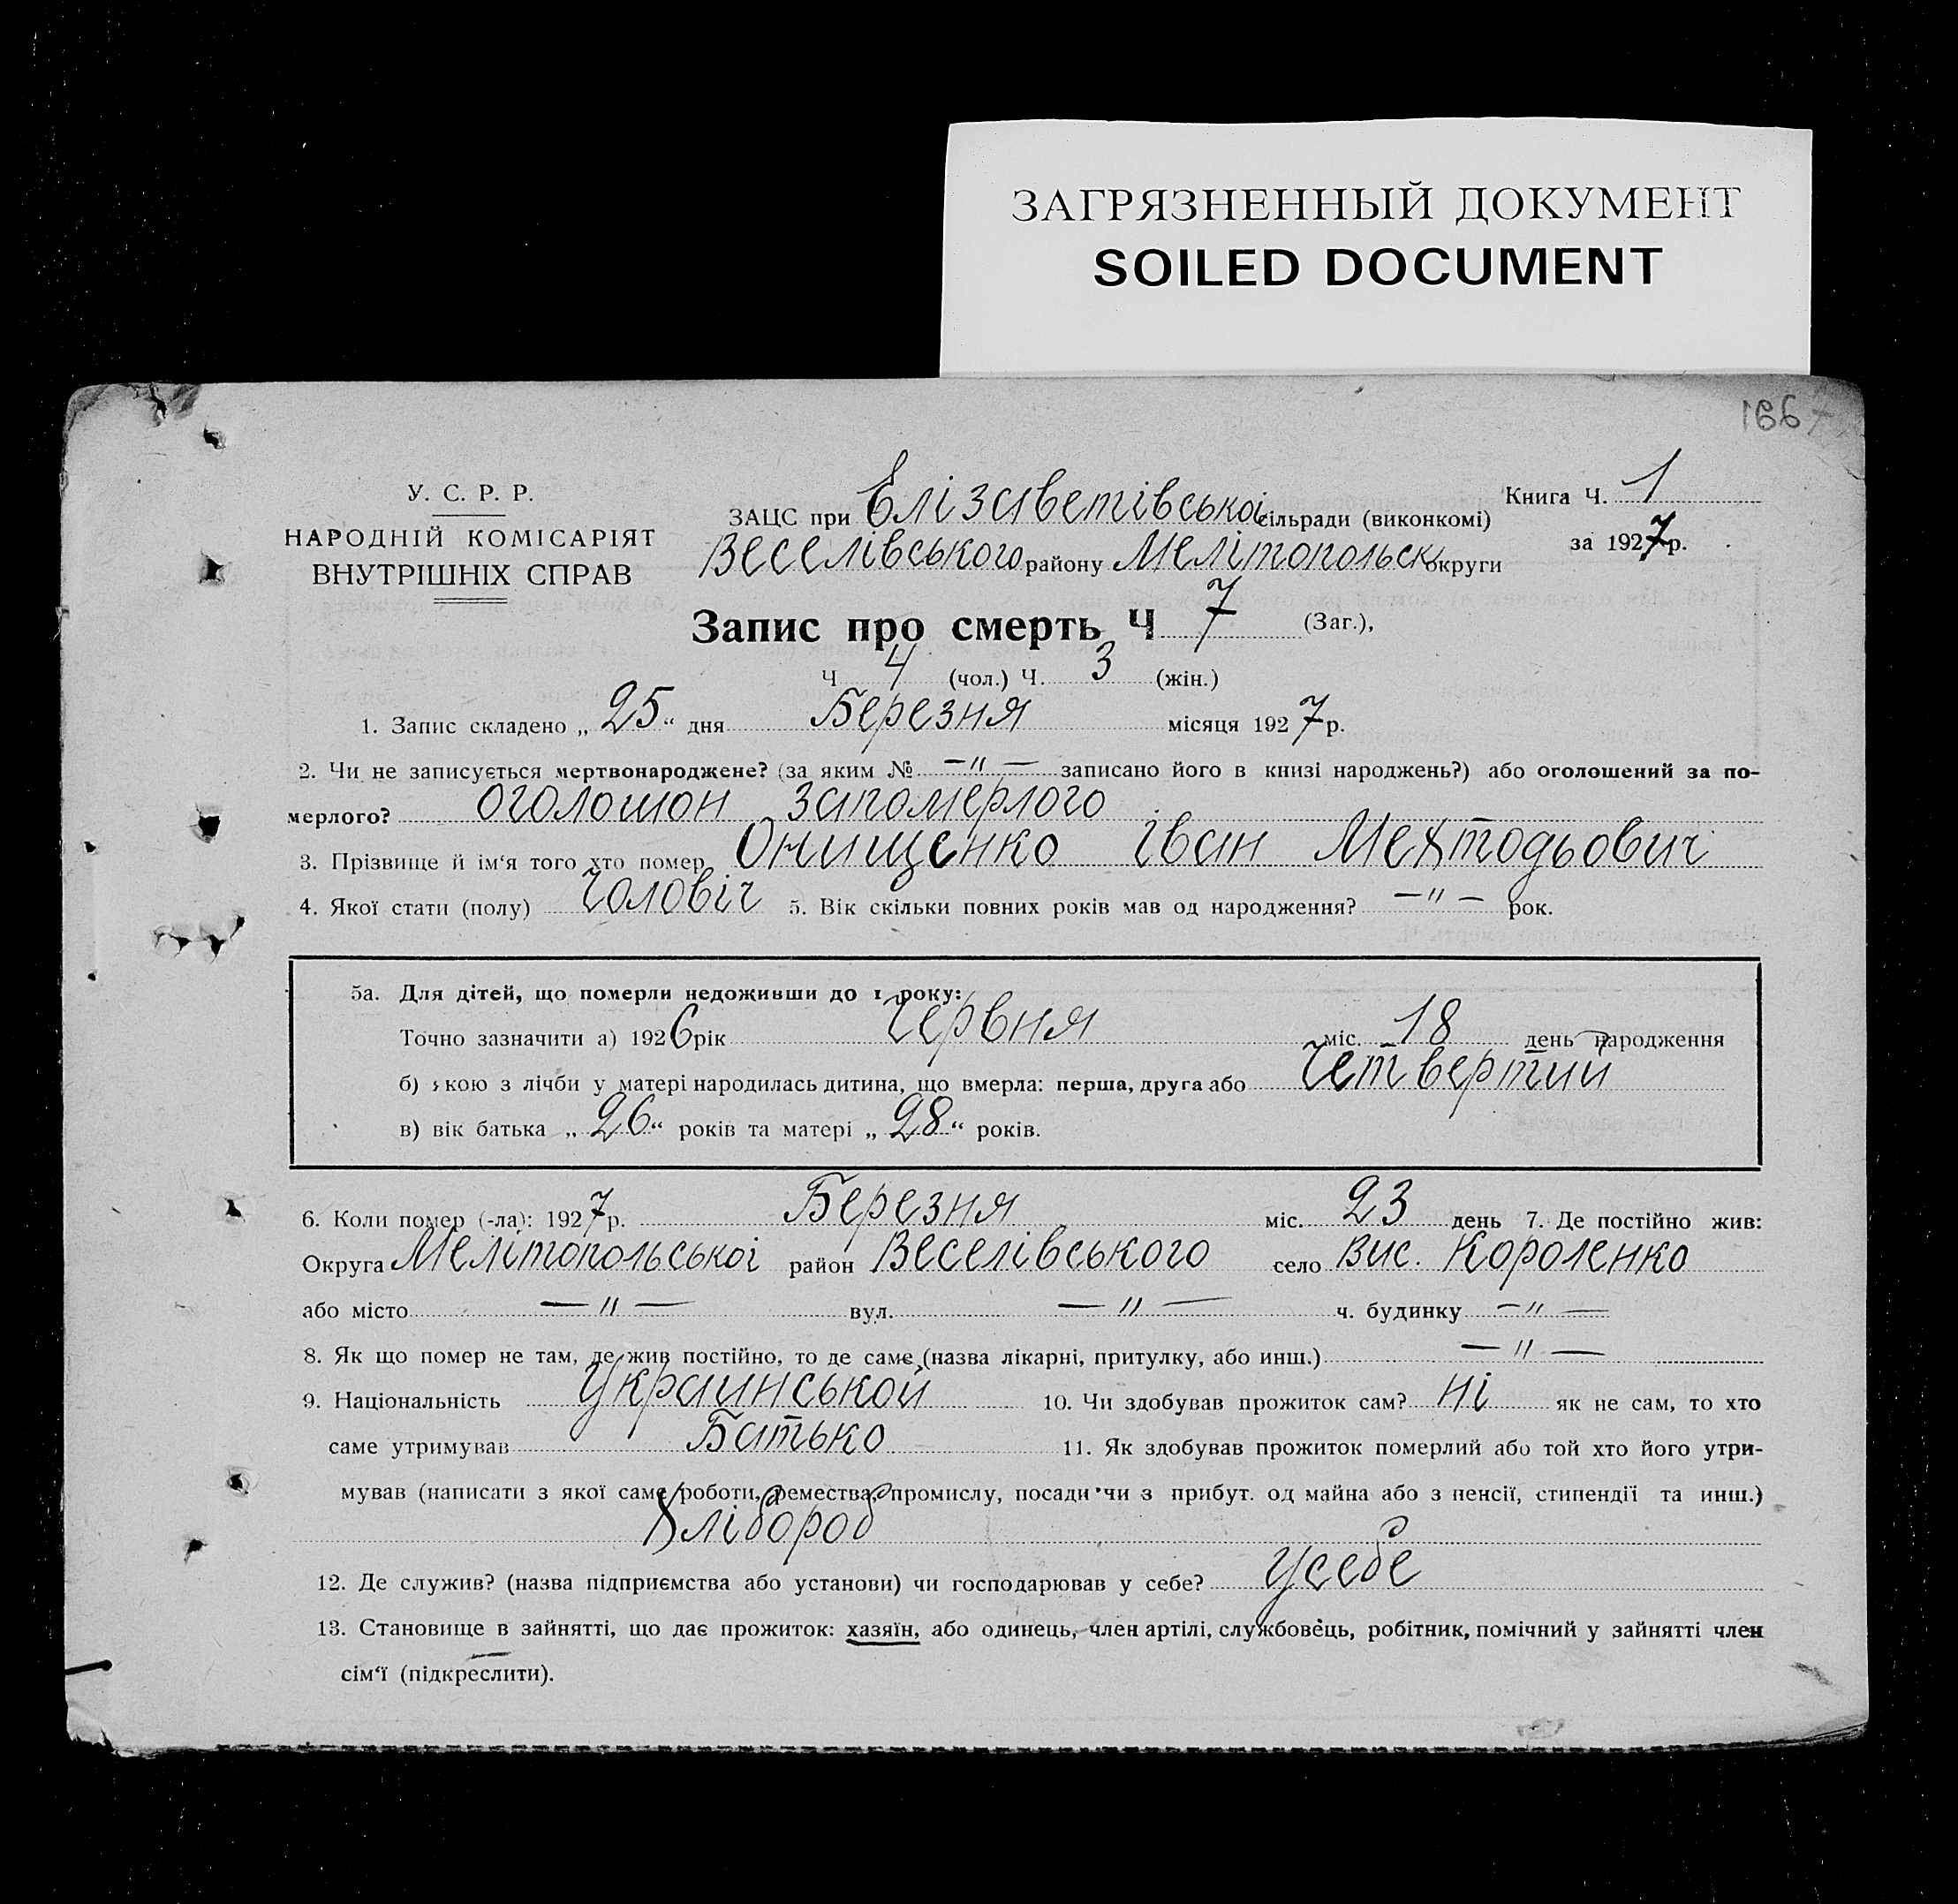 ЗАГРЯЗНЕННЫЙ ДОКУМЕНТ
SOILED DOCUMENT
У. С. Р. Р.
НАРОДНІЙ КОМІСАРІЯТ
ВНУТРІШНІХ СПРАВ
ЗАЦС при Елізаветівської сільради (виконкомі)
Веселівського району Мелітопольск округи
Книга Ч. 1
за 1927 р.
Запис про смерть Ч 7 (Заг.),
Ч 4 (чол.) Ч. 3 (жін.)
1. Запис складено „ 25 “ дня Березня місяця 1927 р.
2. Чи не записується мертвонароджене? (за яким № —"— записано його в книзі народжень?) або оголошений за по-
мерлого? оголошон запомерлого
3. Прізвище й ім‘я того хто помер Онищенко Іван Мехтодьович
4. Якої стати (полу) Чоловіч 5. Вік скільки повних років мав од народження? —"— рок.
5а. Для дітей, що померли недоживши до 1 року:
Точно зазначити а) 1926 рік Червня міс. 18 день народження
б) якою з лічби у матері народилась дитина, що вмерла: перша, друга або Четвертий
в) вік батька „ 26 “ років та матері „ 28 “ років.
6. Коли помер (-ла): 1927 р. Березня міс. 23 день 7. Де постійно жив:
Округа Мелітопольської район Веселівського село Вис. Короленко
або місто —"— вул. —"— ч. будинку —"—
8. Як що помер не там, де жив постійно, то де саме (назва лікарні, притулку, або инш.) —"—
9. Національність Украинськой 10. Чи здобував прожиток сам? ні як не сам, то хто
саме утримував Батько 11. Як здобував прожиток померлий або той хто його утри-
мував (написати з якої саме роботи, ремества, промислу, посади чи з прибут. од майна або з пенсії, стипендії та инш.)
Хлібороб
12. Де служив? (назва підприємства або установи) чи господарював у себе? усебе
13. Становище в зайнятті, що дає прожиток: хазяїн, або одинець, член артілі, службовець, робітник, помічний у зайнятті член
сім‘ї (підкреслити).